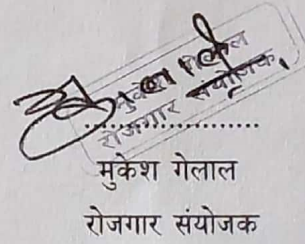 मुकेश गेलाल
रोजगार संयोजक
....................
मुकेश गेलाल
रोजगार संयोजक